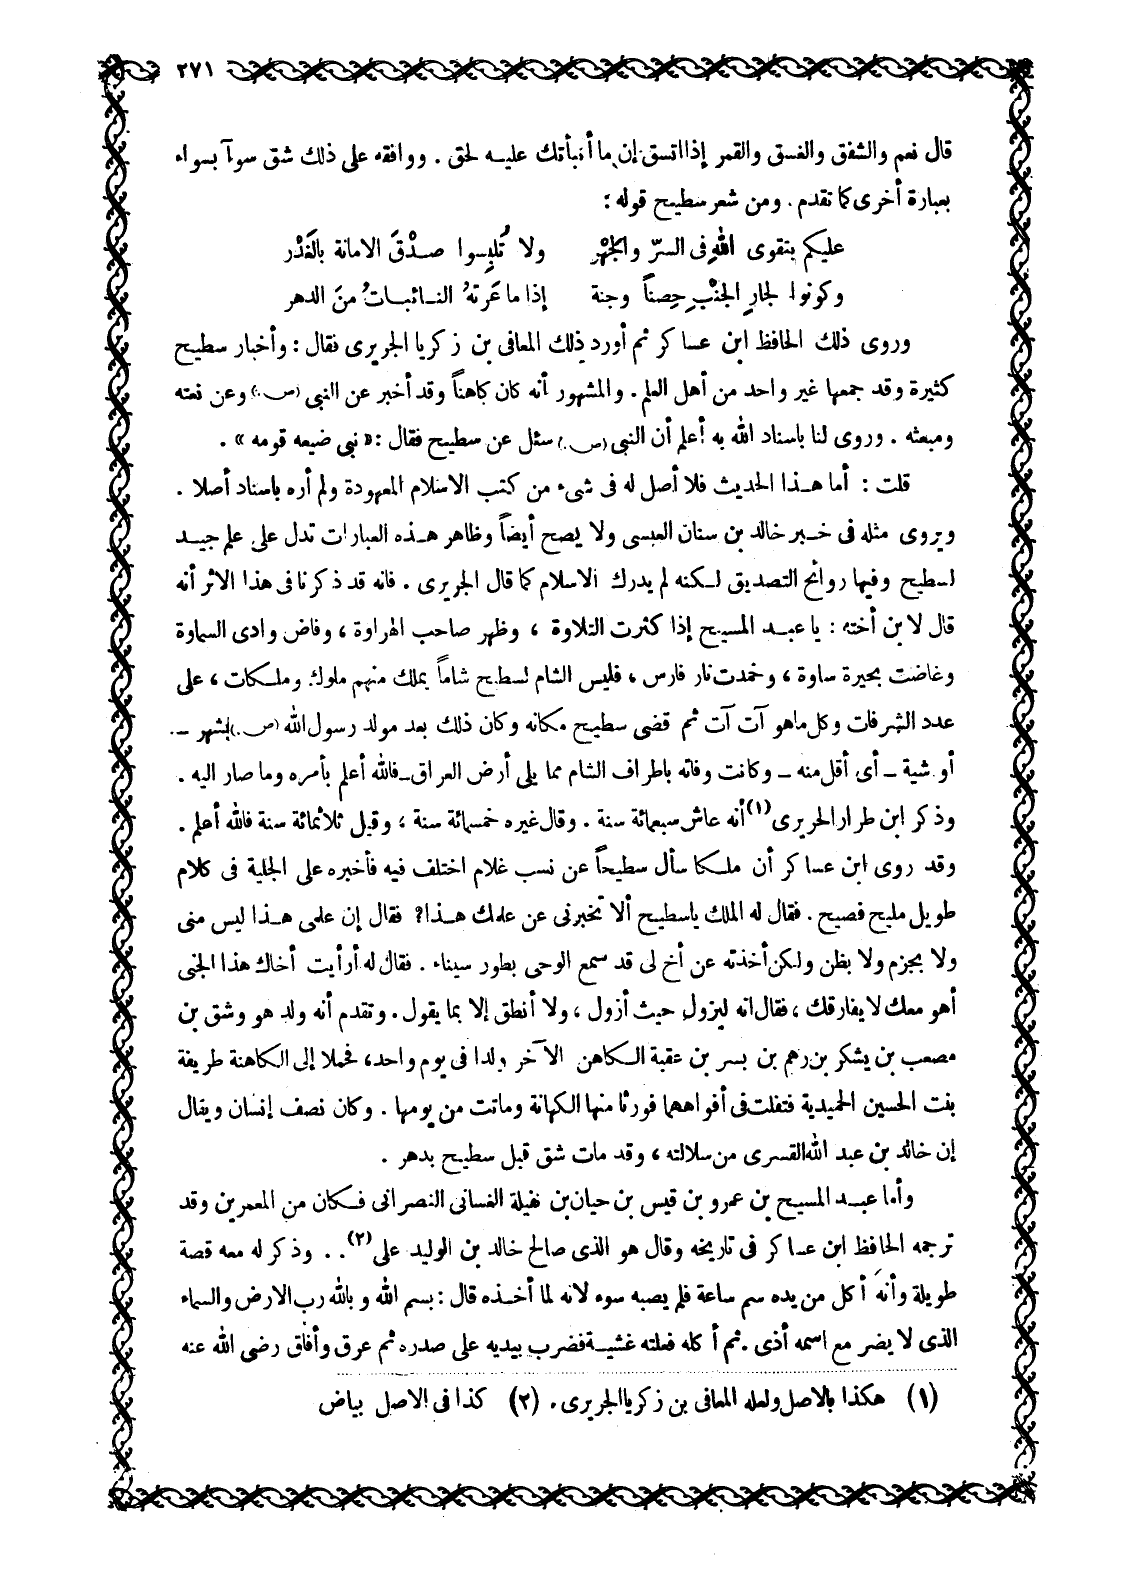 ٢٧١
قال نعم والشفق والغسق والقمر إذا اتسق إن ما أنبأتك عليه لحق . ووافقه على ذلك شق سوآ بسواء
بعبارة أخرى كما تقدم . ومن شعر سطيح قوله :
عليكم بتقوى اللهِ فى السرّ والجَهْرِ ولا تُلبِسوا صدْقَ الامانة بالغَدْر
وكونوا لجارِ الجنْبِ حِصناً وجنة إذا ما عَرتهُ النائباتُ منَ الدهر
وروى ذلك الحافظ ابن عساكر ثم أورد ذلك المعافى بن زكريا الجريرى فقال : وأخبار سطيح
كثيرة وقد جمعها غير واحد من أهل العلم . والمشهور أنه كان كاهناً وقد أخبر عن النبى (ص.) وعن نعته
ومبعثه . وروى لنا باسناد الله به أعلم أن النبى (ص.) سئل عن سطيح فقال : « نبى ضيعه قومه » .
قلت : أما هذا الحديث فلا أصل له فى شىء من كتب الاسلام المعهودة ولم أره باسناد أصلا .
ويروى مثله فى خبر خالد بن سنان العبسى ولا يصح أيضاً وظاهر هذه العبارات تدل على علم جيد
لسطيح وفيها روائح التصديق لكنه لم يدرك الاسلام كما قال الجريرى . فانه قد ذكرنا فى هذا الاثر أنه
قال لابن أخته : يا عبد المسيح إذا كثرت التلاوة ، وظهر صاحب الهراوة ، وفاض وادى السماوة
وغاضت بحيرة ساوة ، وخمدت نار فارس ، فليس الشام لسطيح شاماً يملك منهم ملوك وملكات ، على
عدد الشرفات وكل ما هو آت آت ثم قضى سطيح مكانه وكان ذلك بعد مولد رسول الله (ص.) بشهر ـ
أو شية ـ أى أقل منه ـ وكانت وفاته باطراف الشام مما يلى أرض العراق ـ فالله أعلم بأمره وما صار اليه .
وذكر ابن طرار الحريرى (١) أنه عاش سبعمائة سنة . وقال غيره خمسمائة سنة ، وقيل ثلاثمائة سنة فالله أعلم .
وقد روى ابن عساكر أن ملكا سأل سطيحاً عن نسب غلام اختلف فيه فأخبره على الجلية فى كلام
طويل مليح فصيح . فقال له الملك ياسطيح ألا تخبرنى عن علمك هذا؟ فقال إن علمى هذا ليس منى
ولا بجزم ولا بظن ولكن أخذته عن أخ لى قد سمع الوحى بطور سيناء . فقال له أرأيت أخاك هذا الجنى
أهو معك لا يفارقك ، فقال انه ليزول حيث أزول ، ولا أنطق إلا بما يقول . وتقدم أنه ولد هو وشق بن
مصعب بن يشكر بن رهم بن بسر بن عقبة الكاهن الآخر ولدا فى يوم واحد ، فحملا إلى الكاهنة طريفة
بنت الحسين الحميدية فتفلت فى أفواههما فورثا منها الكهانة وماتت من يومها . وكان نصف إنسان ويقال
إن خالد بن عبد الله القسرى من سلالته ، وقد مات شق قبل سطيح بدهر .
وأما عبد المسيح بن عمرو بن قيس بن حيان بن نفيلة الغسانى النصرانى فكان من المعمرين وقد
ترجمه الحافظ ابن عساكر فى تاريخه وقال هو الذى صالح خالد بن الوليد على (٢) . . وذكر له معه قصة
طويلة وأنه أكل من يده سم ساعة فلم يصبه سوء لانه لما أخذه قال : بسم الله وبالله رب الارض والسماء
الذى لا يضر مع اسمه أذى . ثم أكله فعلته غشية فضرب بيديه على صدره ثم عرق وأفاق رضى الله عنه
(١) هكذا بالاصل ولعله المعافى بن زكريا الجريرى . (٢) كذا فى الاصل بياض